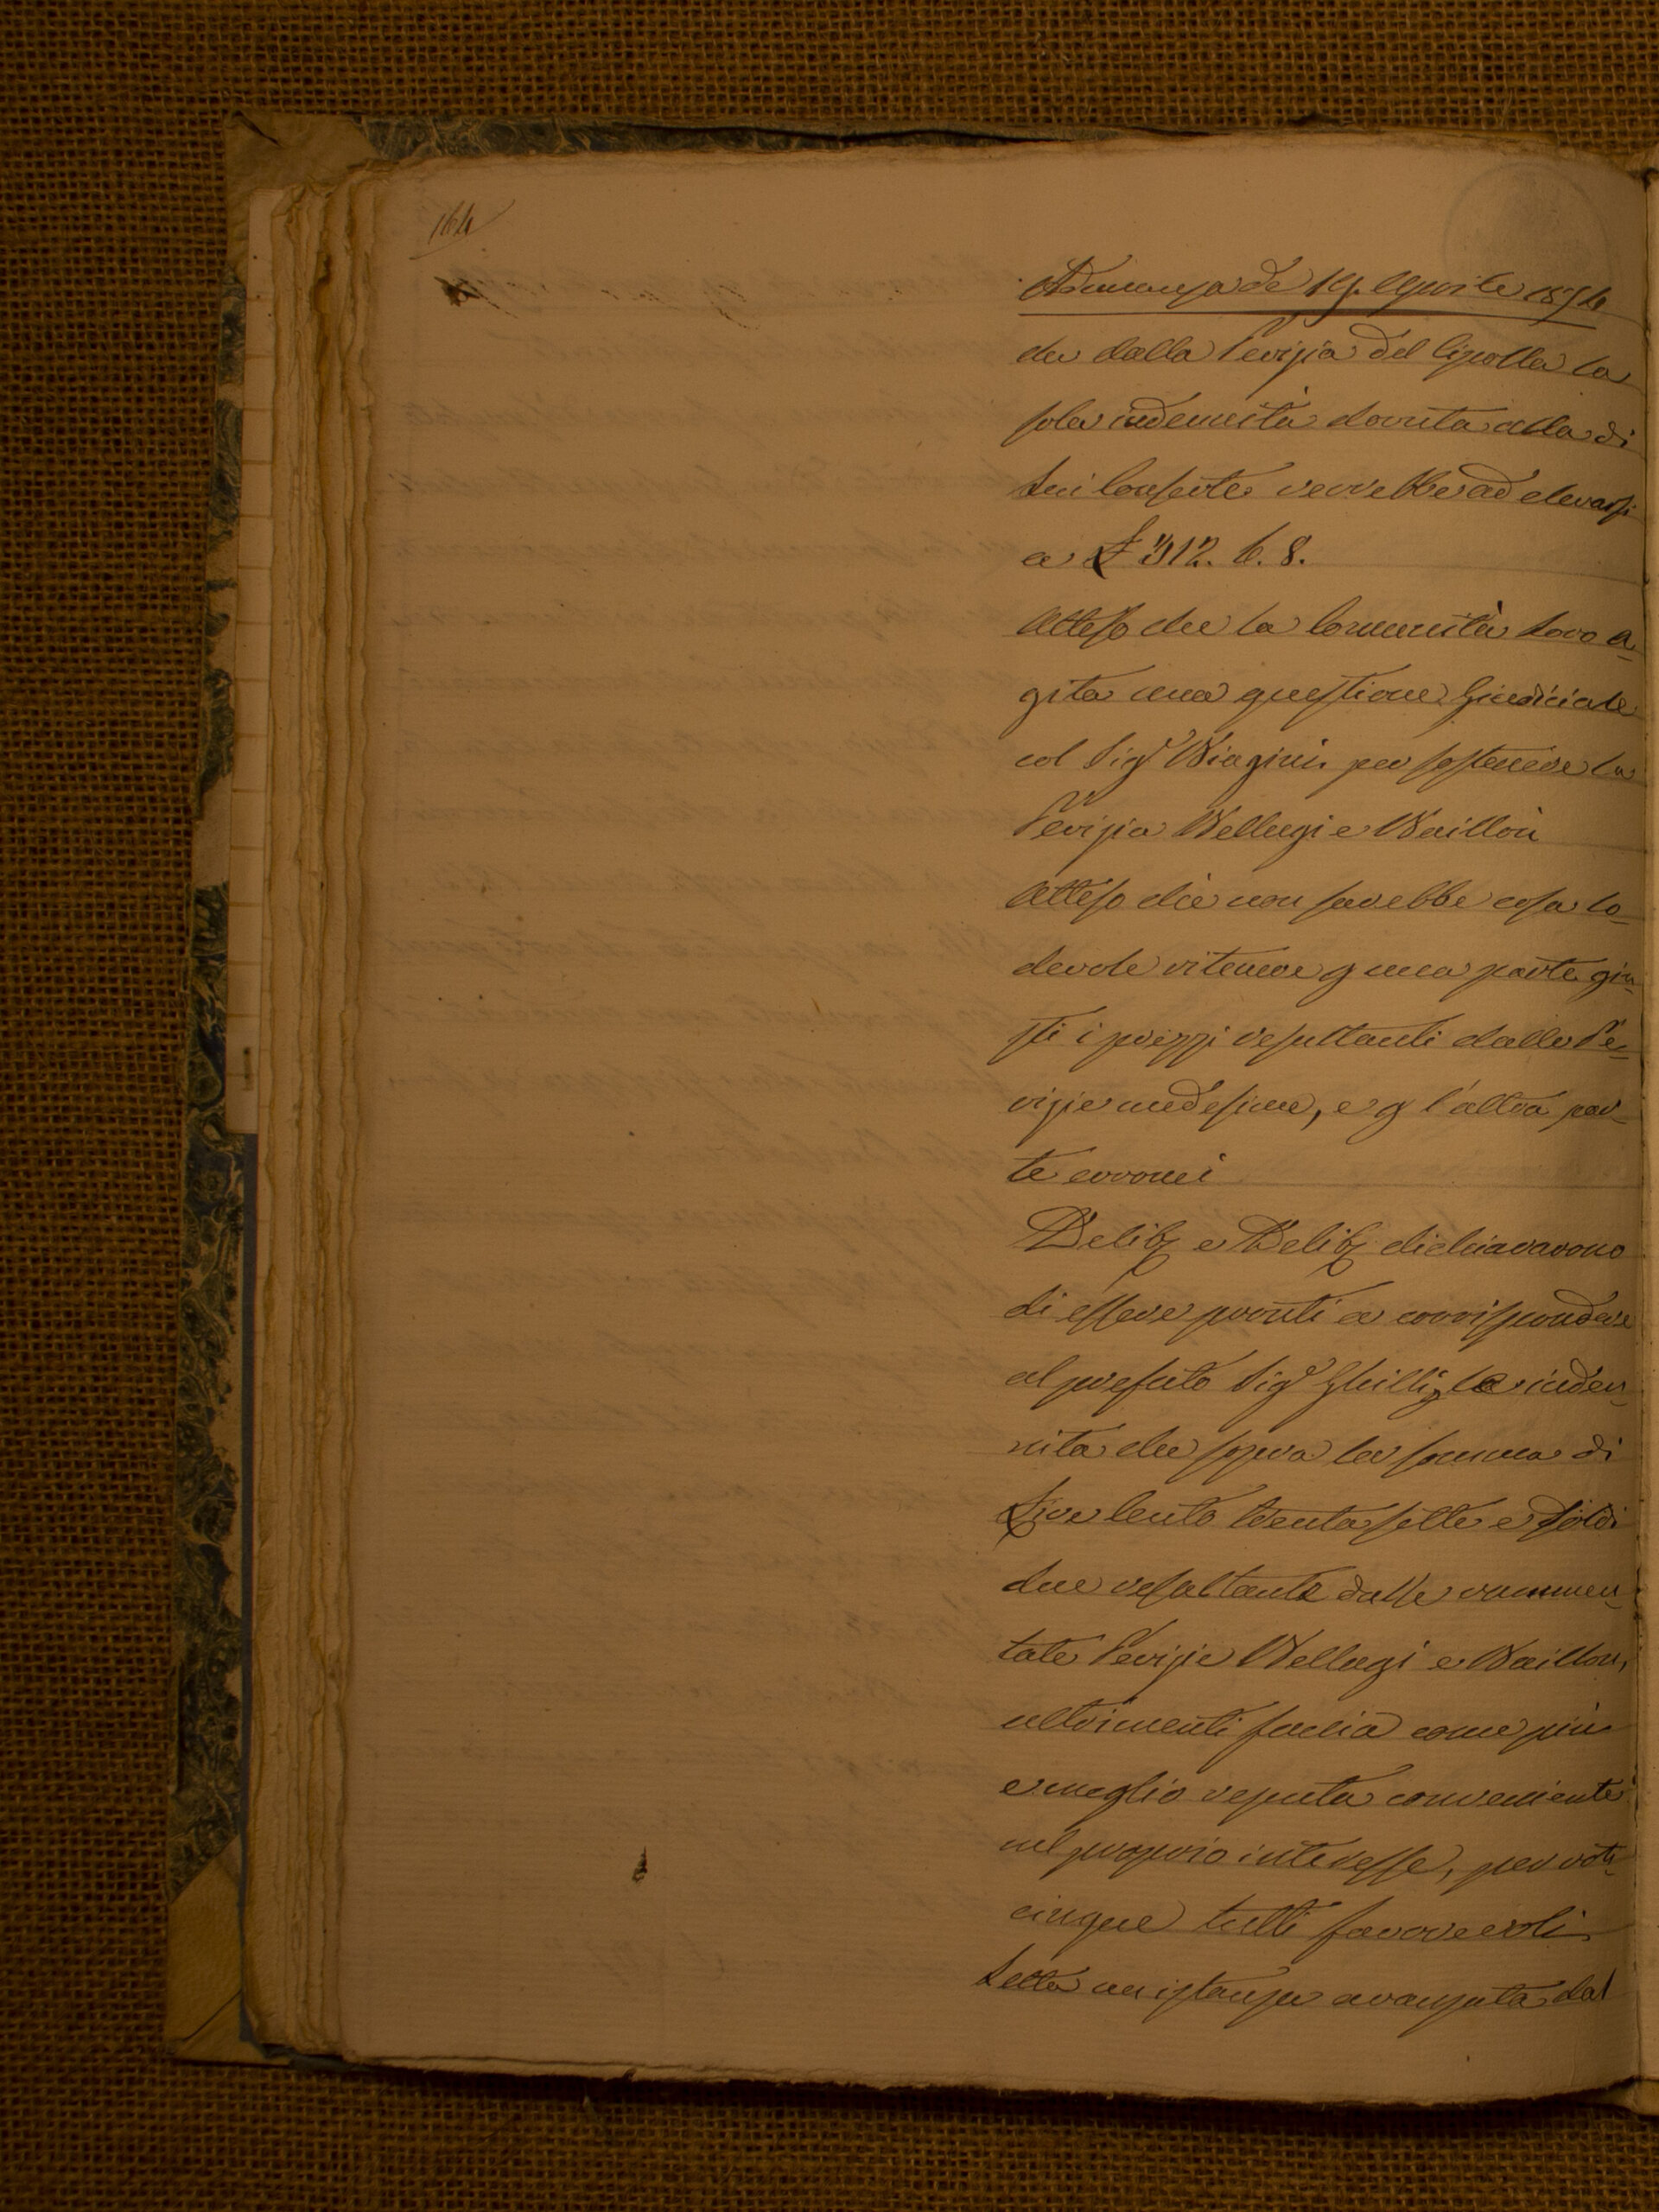 164
Adunanza de 19. Aprile 1854
che dalla Perizia del Cipolla la
sola indennità dovuta alla di
Lui Consorte verrebbe ad elevarsi
a £ 312. 6. 8.
Atteso che la Comunità Loro a_
gita una questione Giudiciale
col Sig.r Biagini per sostenere la
Perizia Bellugi e Baillou
Atteso che non sarebbe cosa lo_
devole ritenere p una parte giu_
sti i prezzi resultanti dalle Pe_
rizie medesime, e p l'altra par_
te erronei
Delib. e Delib. dichiararono
di essere pronti a corrispondere
al prefato Sig.r le inden_
nità che sopra la somma di
Lire Cento trenta sette e soldi
due resultante dalle rammen_
tate Perizie Bellugi e Baillou,
altrimenti faccia come più
e meglio reputa conveniente
nel proprio interesse, per voti
cinque tutti favorevoli
Letta un istanza avanzata dal